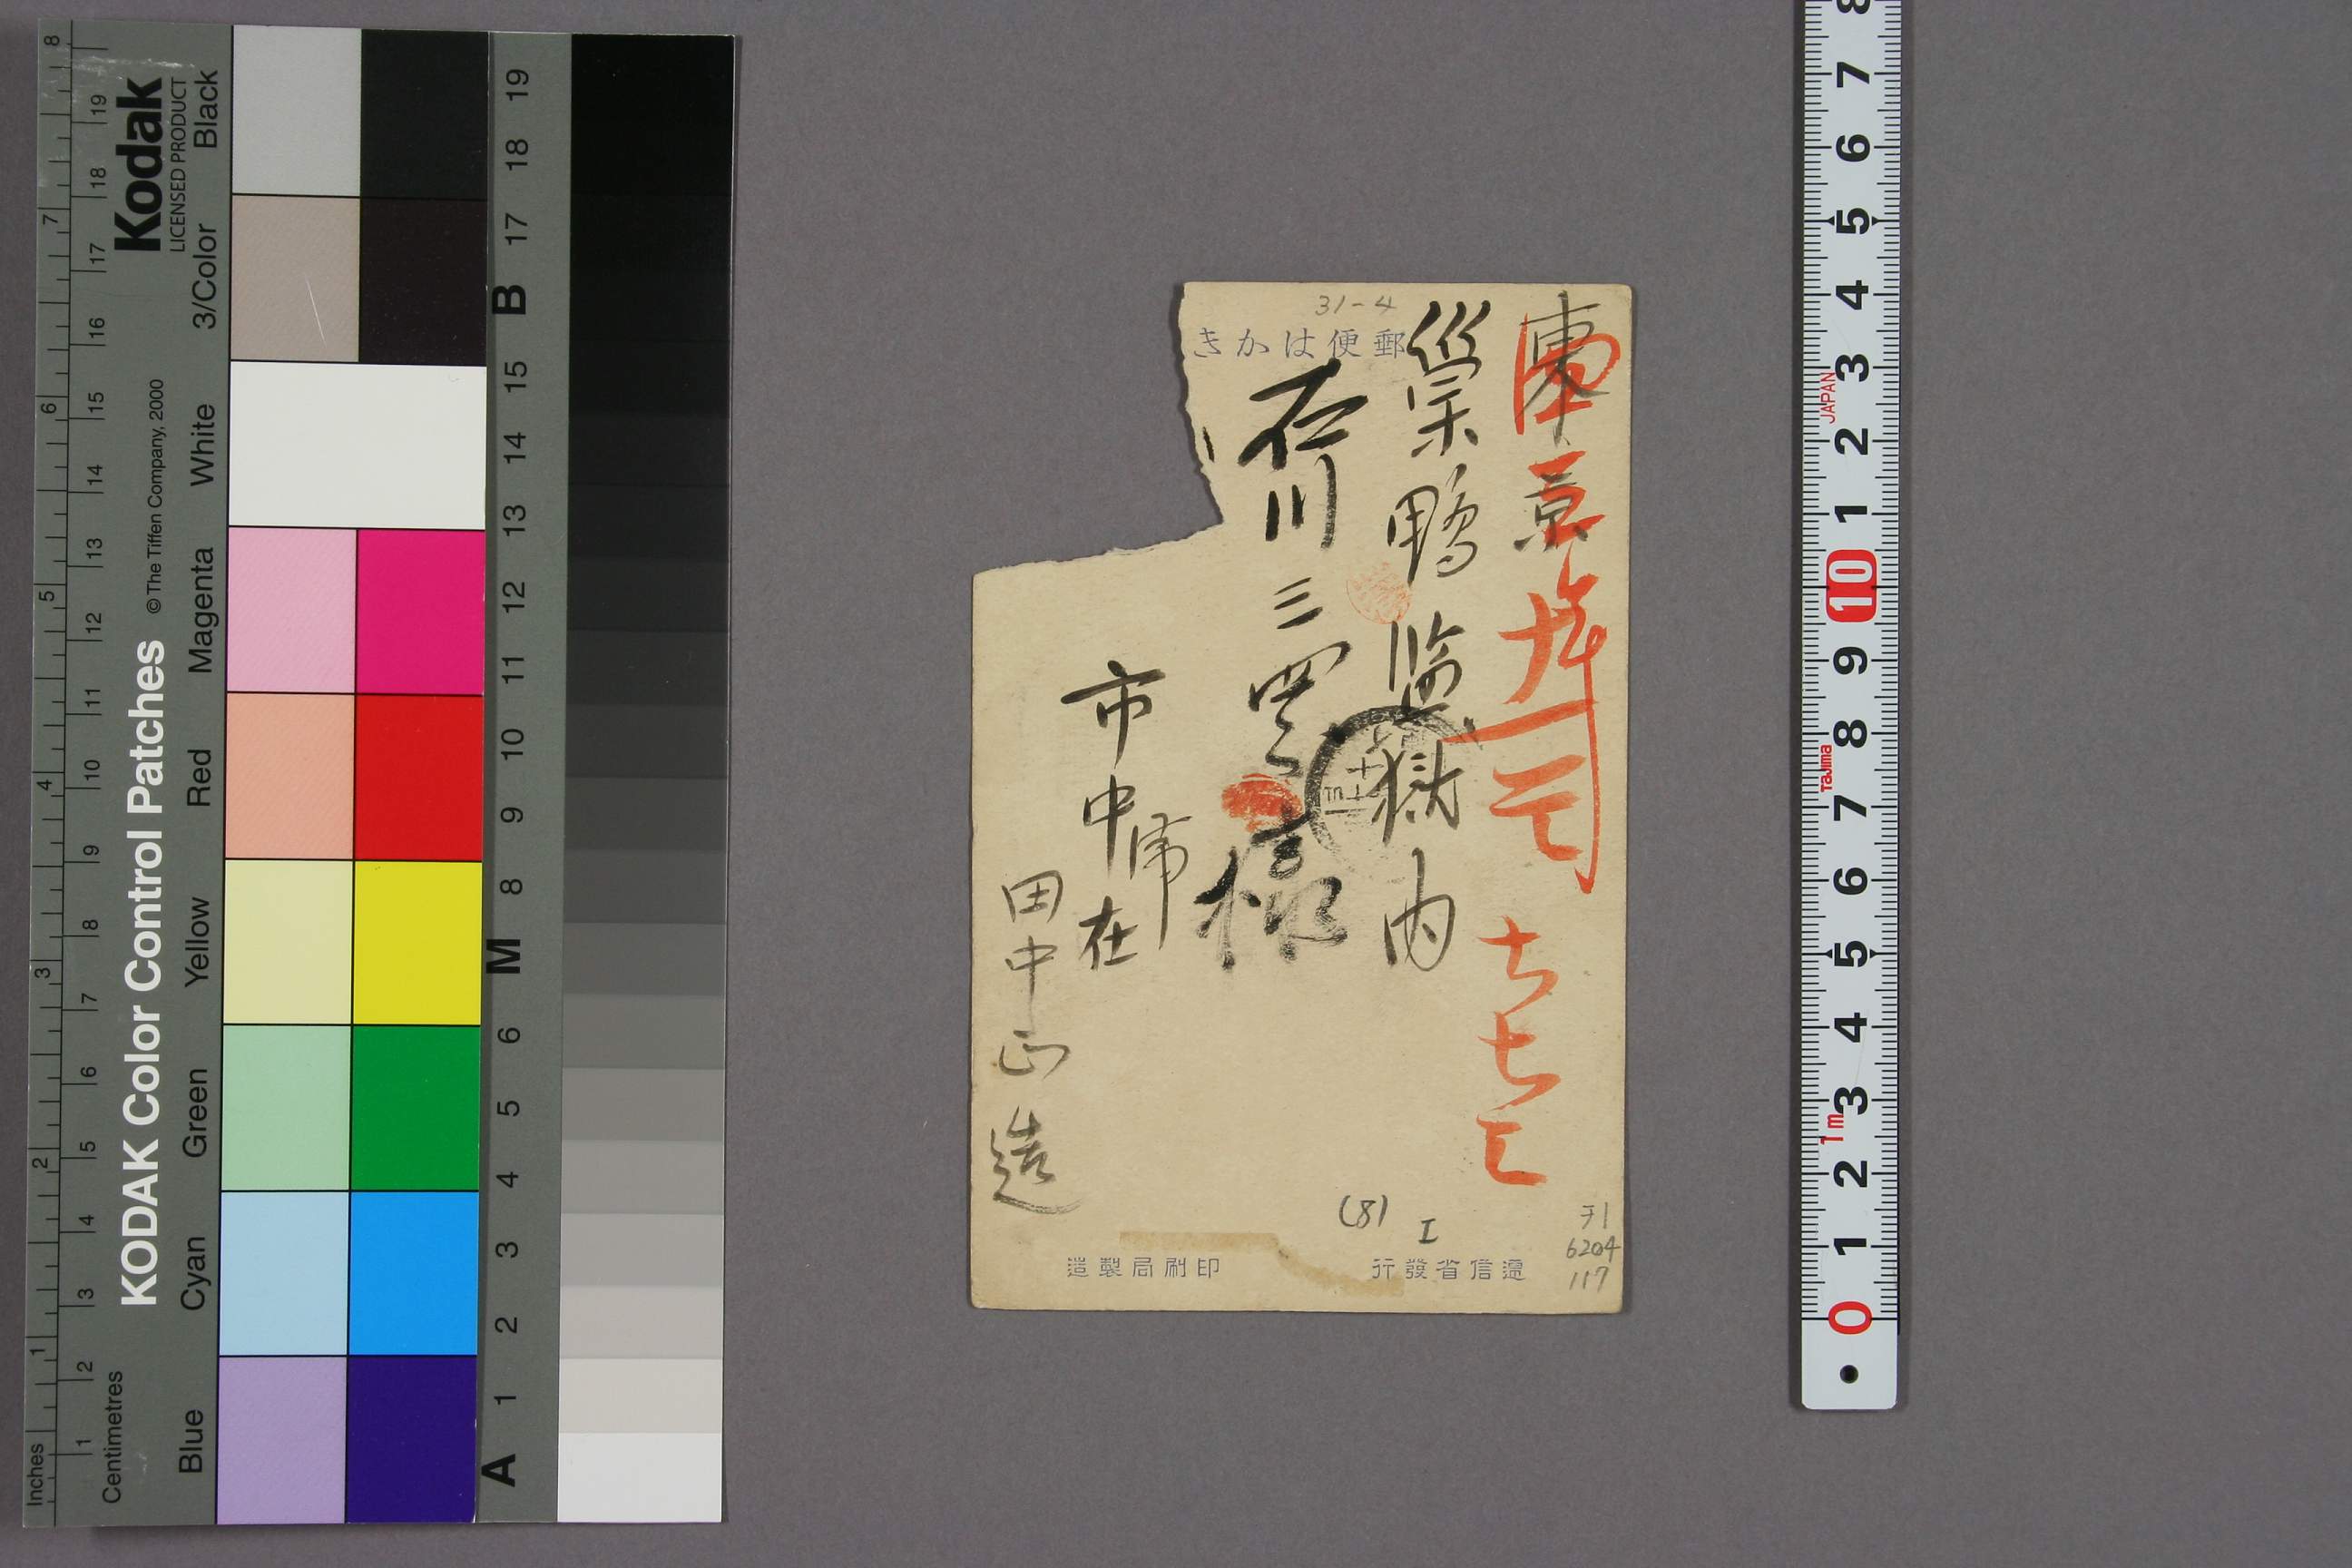 KODAK Color Control Patches
©The Tiffen Company, 2000
Kodak
LICENSED PRODUCT
Inches
Centimetres
Blue
Cyan
Green
Yellow
Red
Magenta
White
3/Color
Black
1 2 3 4 5 6 7 8
1 2 3 4 5 6 7 8 9 10 11 12 13 14 15 16 17 18 19
A 1 2 3 4 5 6 M 8 9 10 11 12 13 14 15 B 17 18 19
31-4
郵便はかき
東京
巣鴨監獄内
石川三四郎様
市中
在
田中正造
七七三
(8)
I
逓信省發行
印刷局製造
6204
117
8 7 6 5 4 3 2 1 10 9 8 7 6 5 4 3 2 1 0
JAPAN
Tajima
1m